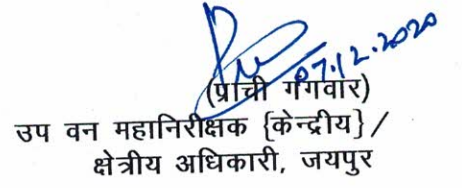 07.12.2020
(प्राची गंगवार)
उप वन महानिरीक्षक {केन्द्रीय} /
क्षेत्रीय अधिकारी, जयपुर